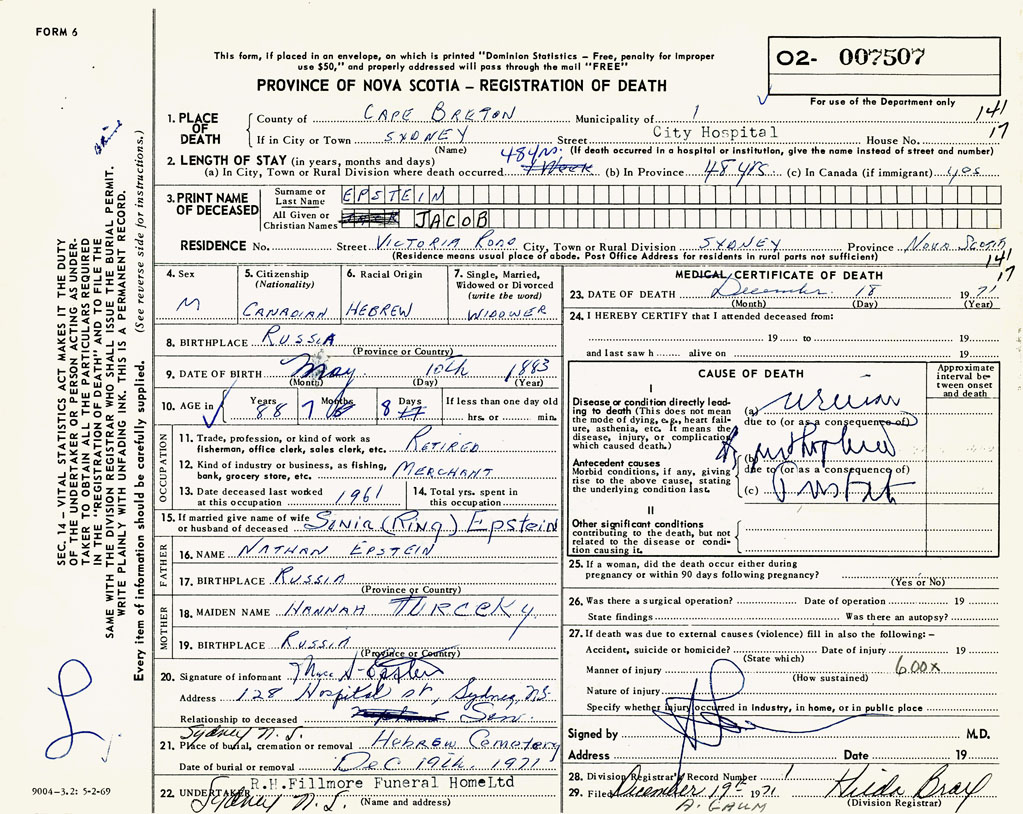 FORM 6
This form, if placed in an envelope, on which is printed "Dominion Statistics – Free, penalty for improper
use $50," and properly addressed will pass through the mail "FREE"
O2- 007507
PROVINCE OF NOVA SCOTIA – REGISTRATION OF DEATH
For use of the Department only
141
17
1. PLACE OF DEATH
County of CAPE BRETON Municipality of 1
If in City or Town SYDNEY Street City Hospital House No.
(Name) (If death occurred in a hospital or institution, give the name instead of street and number)
2. LENGTH OF STAY (in years, months and days)
(a) In City, Town or Rural Division where death occurred 48 yrs. 1 Week (b) In Province 48 yrs. (c) In Canada (if immigrant) yes
3. PRINT NAME OF DECEASED
Surname or Last Name EPSTEIN
All Given or Christian Names JACOB
RESIDENCE No. Street VICTORIA ROAD City, Town or Rural Division SYDNEY Province NOVA SCOTIA
(Residence means usual place of abode. Post Office Address for residents in rural parts not sufficient)
141
17
4. Sex
M
5. Citizenship
(Nationality)
CANADIAN
6. Racial Origin
HEBREW
7. Single, Married,
Widowed or Divorced
(write the word)
WIDOWER
8. BIRTHPLACE RUSSIA
(Province or Country)
9. DATE OF BIRTH May 10th 1883
(Month) (Day) (Year)
10. AGE in Years 88 Months 7 Days 8 If less than one day old
hrs. or min.
OCCUPATION
11. Trade, profession, or kind of work as
fisherman, office clerk, sales clerk, etc. RETIRED
12. Kind of industry or business, as fishing,
bank, grocery store, etc. MERCHANT
13. Date deceased last worked
at this occupation 1961
14. Total yrs. spent in
this occupation
15. If married give name of wife
or husband of deceased SONIA (RING) EPSTEIN
FATHER
16. NAME NATHAN EPSTEIN
17. BIRTHPLACE RUSSIA
(Province or Country)
MOTHER
18. MAIDEN NAME HANNAH TURCCKY
19. BIRTHPLACE RUSSIA
(Province or Country)
20. Signature of informant
Address 128 Hospital St, Sydney, N.S.
Relationship to deceased Son.
Sydney N.S.
21. Place of burial, cremation or removal Hebrew Cemetery
Date of burial or removal Dec 19th. 1971
22. UNDERTAKER R.H.Fillmore Funeral HomeLtd
Sydney N.S. (Name and address)
MEDICAL CERTIFICATE OF DEATH
23. DATE OF DEATH December 18 1971
(Month) (Day) (Year)
24. I HEREBY CERTIFY that I attended deceased from:
19 to 19
and last saw h alive on 19
CAUSE OF DEATH
Approximate
interval be-
tween onset
and death
I
Disease or condition directly lead-
ing to death (This does not mean
the mode of dying, e.g., heart fail-
ure, asthenia, etc. It means the
disease, injury, or complication
which caused death.)
(a)
due to (or as a consequence of)
Antecedent causes
Morbid conditions, if any, giving
rise to the above cause, stating
the underlying condition last.
(b)
due to (or as a consequence of)
(c)
II
Other significant conditions
contributing to the death, but not
related to the disease or condi-
tion causing it.
25. If a woman, did the death occur either during
pregnancy or within 90 days following pregnancy?
(Yes or No)
26. Was there a surgical operation? Date of operation 19
State findings Was there an autopsy?
27. If death was due to external causes (violence) fill in also the following:–
Accident, suicide or homicide? Date of injury 19
(State which)
Manner of injury 600x
(How sustained)
Nature of injury
Specify whether injury occurred in industry, in home, or in public place
Signed by M.D.
Address Date 19
28. Division Registrar's Record Number 1
29. Filed December 19th 1971 Hilda Bray
A. GAUM (Division Registrar)
SEC. 14 – VITAL STATISTICS ACT MAKES IT THE DUTY
OF THE UNDERTAKER OR PERSON ACTING AS UNDER-
TAKER TO OBTAIN ALL THE PARTICULARS REQUIRED
IN THE "REGISTRATION OF DEATH" AND TO FILE THE
SAME WITH THE DIVISION REGISTRAR WHO SHALL ISSUE THE BURIAL PERMIT.
WRITE PLAINLY WITH UNFADING INK. THIS IS A PERMANENT RECORD.
Every item of information should be carefully supplied. (See reverse side for instructions.)
9004-3.2: 5-2-69